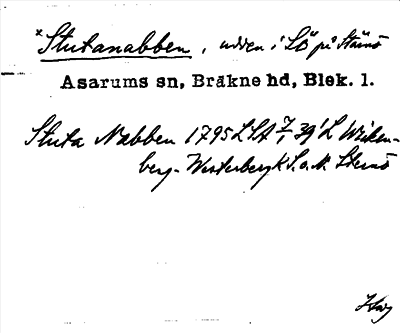 *Stutanabben, udden i Lö på Stärnö
Asarums sn, Bräkne hd, Blek. l.
Stuta Nabben 1795 LSA 39 L Wiken-
berg-Westerberg K S. o. N. Sternö